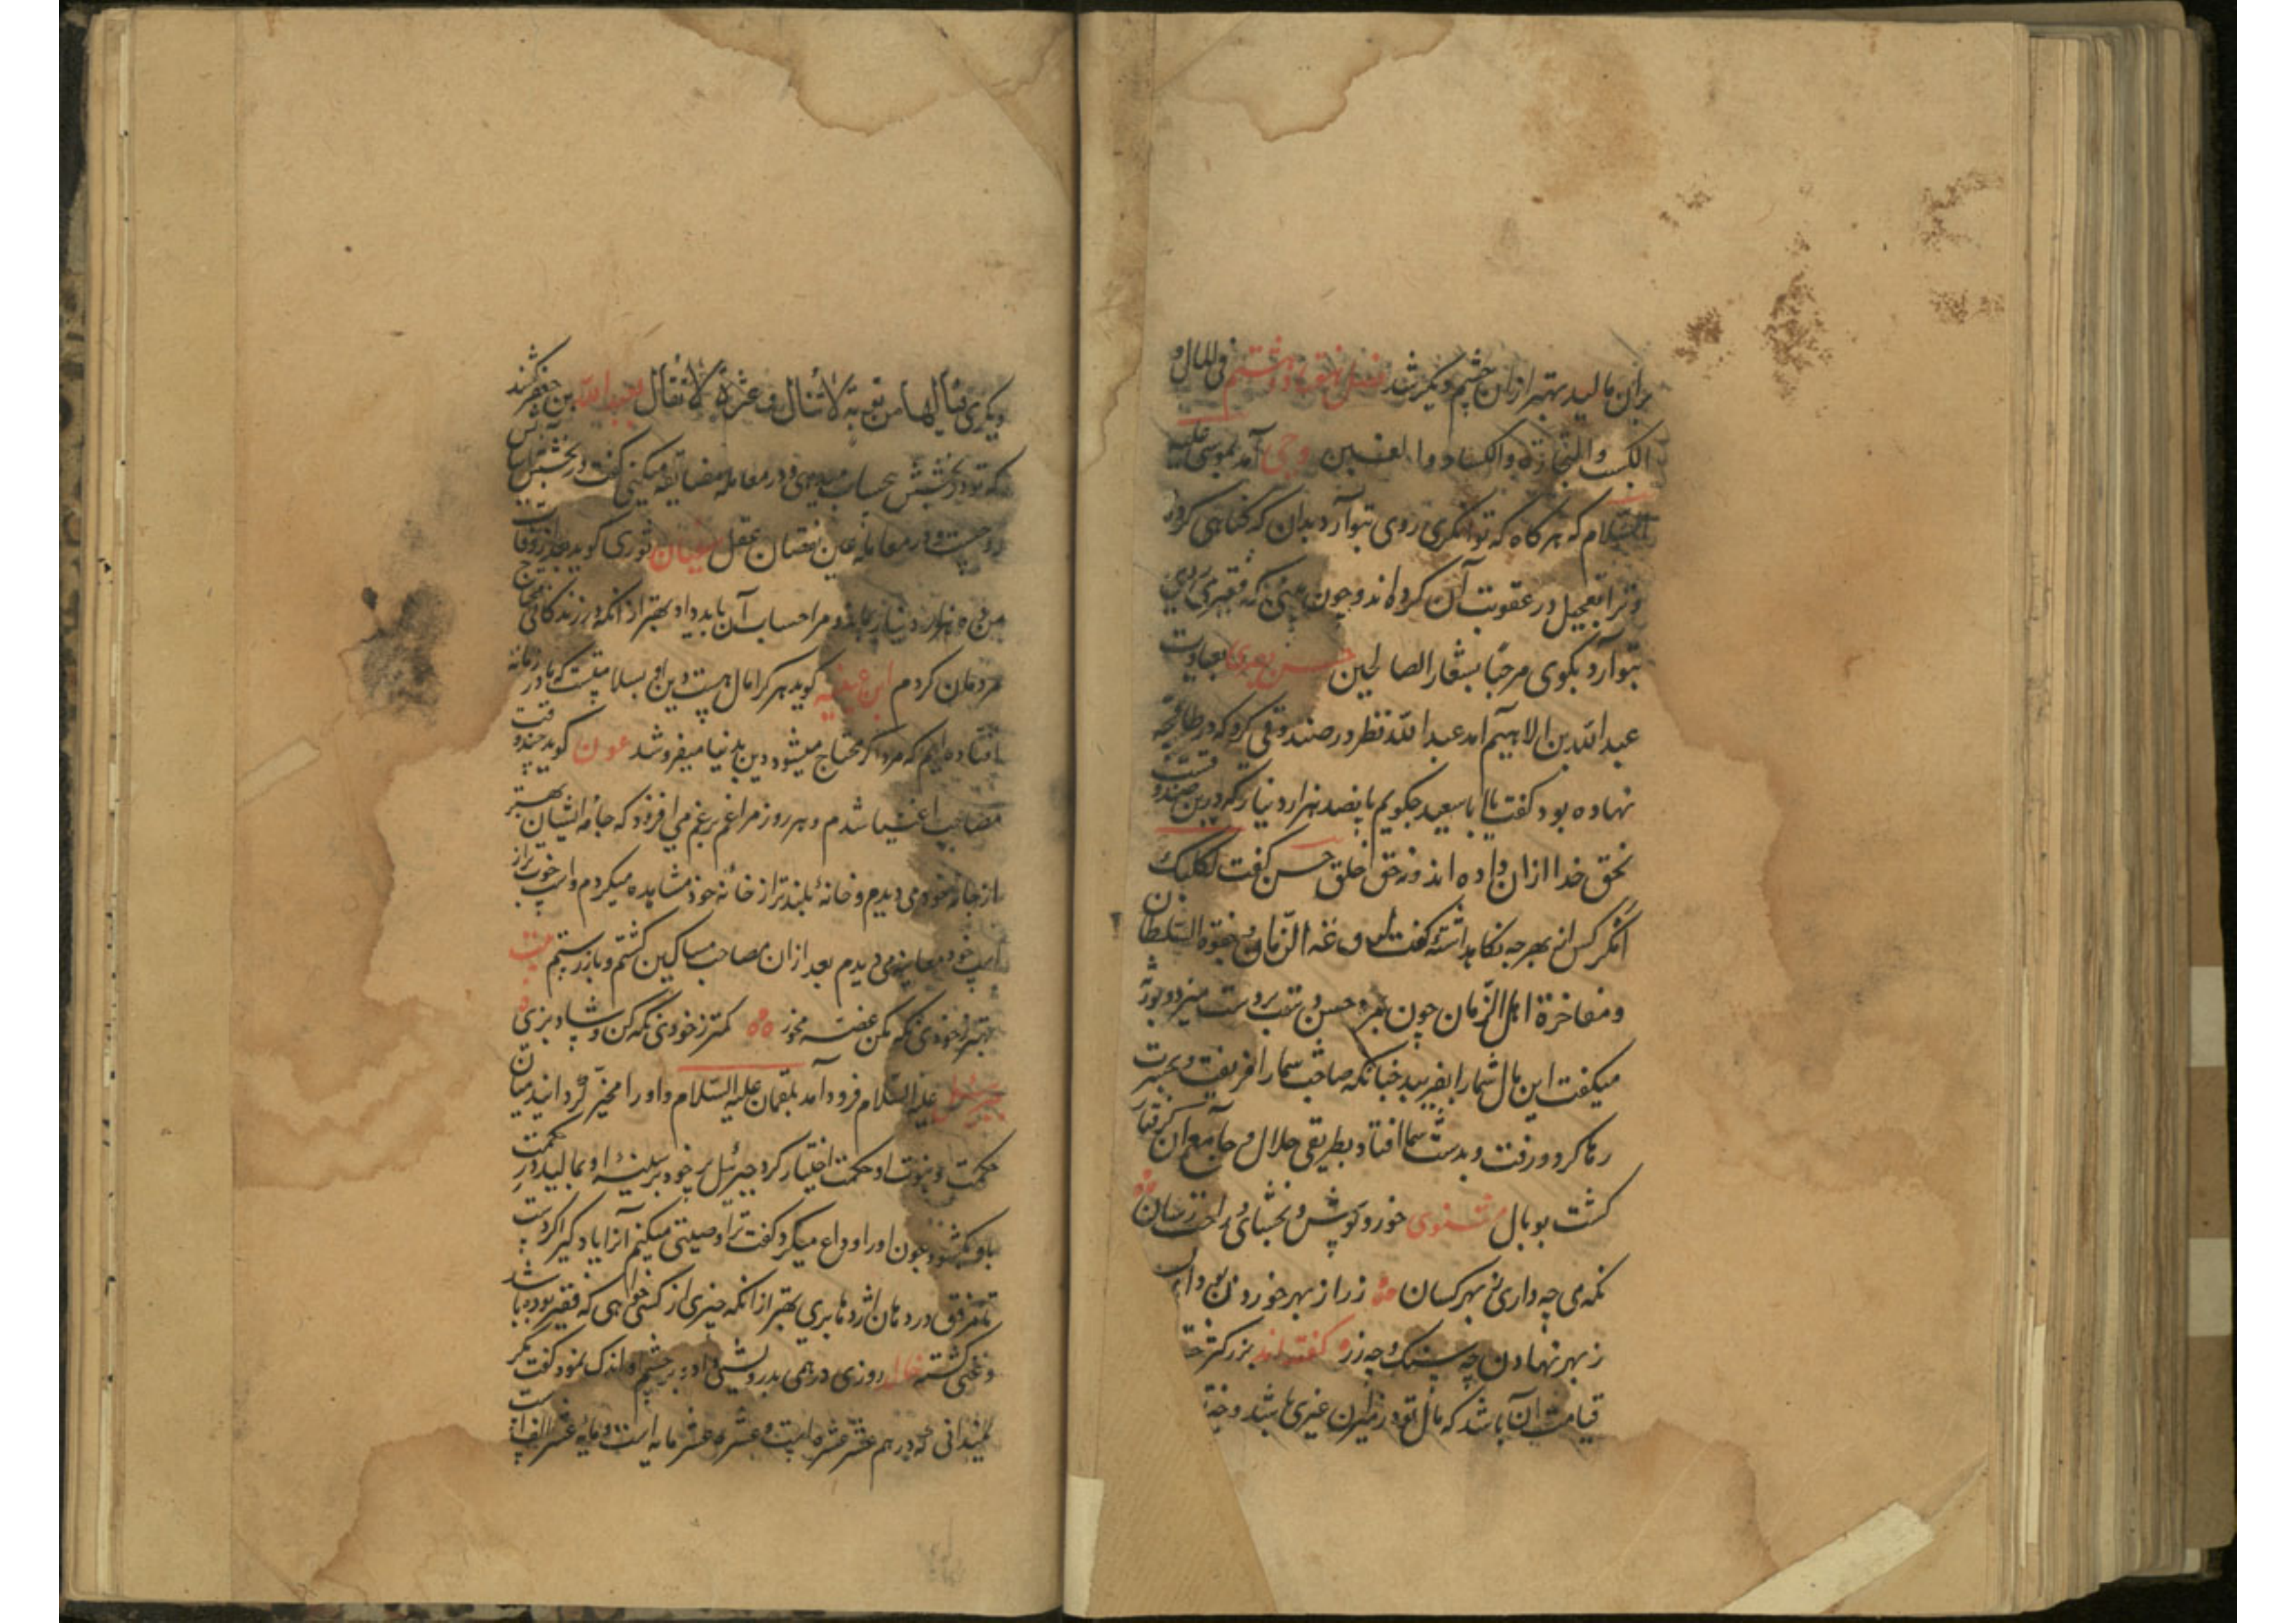 بران مالید بهتر ازان چشم دیکر شد فصل هفتاد و هشتم فی المال و
الکسب والتجارة والکساد وا وحی آمد بموسی علیه
السلام که هر کاه که توانکری روی بتو آرد بدان که کناهی کردۀ
و ترا تعجیل در عقوبت آن کرده اند و چون بینی که فقیری روی
بتو آرد بکوی مرحبًا بشعار الصالحین حسن بصری بعیادت
عبد الله بن الاهیم آمد عبد الله نظر در صندوقی کرد که در طاقچه
نهاده بود کفت یا ابا سعید چکویم با پانصد هزار دینار که درین صندوقست
نحق خدا ازان داده اند و نه حق خلق حسن کفت ثکلتک
امک پس از بهر چه نکاهداشتۀ کفت لروعة الزمان و جفوة السلطان
و مفاخرة اهل الزمان چون بمرد حسن دست بر دست میزد و
میکفت این مال شما را نفریبد چنانکه صاحب شما را فریفت و بحسرت
رها کرد و رفت و بدست شما افتاد بطریق حلال و جامع آن کرفتار
کشت بوبال مثنوی خور و پوش و بخشای و راحت رسان
نکه می چه داری ز بهر کسان زر از بهر خوردن بود ای
ز بهر نهادن چه سنک و چه زر کفته اند بزرکتر
قیامت آن باشد که مال تو در میزان غیری باشد و
دیکری فیالها من توبة لا تنال و عثرة لا تقال بعبد الله بن جعفر کفتند
که تو در بخشش بحساب میدهی و در معامله مضایقه میکنی کفت در بخشش آسایش
روحست و در معامله عین نقصان عقل سفیان ثوری کوید بعد از وفات
من ده هزار دینار بماند و مرا حساب آن باید داد بهتر از انکه در زندکانی محتاج
مردمان کردم ابن عیینه کوید هر کرا مال هست دین او بسلامتست که ما در زمانۀ
افتاده ایم که مرد اکر محتاج میشود دین بدنیا میفروشد عون کوید چند وقت
مصاحب اغنیا شدم و هر روز مرا غم بر غم می افزود که جامۀ ایشان بهتر
از جامۀ خود می دیدم و خانۀ بلندتر از خانۀ خود مشاهده میکردم و اسب خوب تر از
اسب خود معاینه می دیدم بعد ازان مصاحب مساکین کشتم و باز رستم بیت
بهتر ز خودی نکه مکن غصه مخور کمتر ز خودی نکه کن و شاد بزی
جبرئیل علیه السلام فرود آمد بلقمان علیه السلام و او را مخیّر کردانید میان
حکمت و نبوت او حکمت اختیار کرد جبرئیل پر خود بر سینۀ او بمالید در حکمت
باو بکشود چون او را وداع میکرد کفت ترا وصیتی میکنم آنرا یاد کیر اکر دست
تا مرفق در دهان اژدها بری بهتر از انکه چیزی از کسی خواهی که فقیر بوده باشد
و غنی کشته خالد روزی درهمی بدرویشی داد بر چشم او اندک نمود کفت مکر
نمیدانی که درهم عشر عشره است و عشره عشر مایه است و مایه عشر الف است